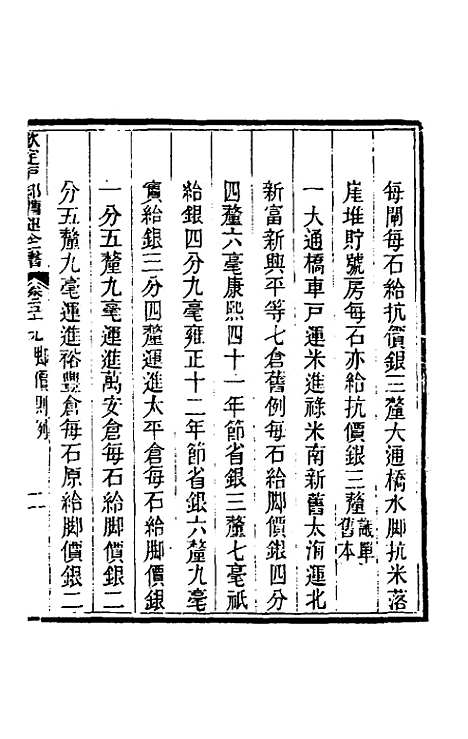 每閘每石給抗價銀三釐大通橋水脚抗米落
崖堆貯號房每石亦給抗價銀三釐議單舊本
一大通橋車戶運米進祿米南新舊太海運北
新富新興平等七倉舊例每石給脚價銀四分
四釐六毫康熙四十一年節省銀三釐七毫祇
給銀四分九毫雍正十二年節省銀六釐九毫
實給銀三分四釐運進太平倉每石給脚價銀
一分五釐九毫運進萬安倉每石給脚價銀二
分五釐九毫運進裕豐倉每石原給脚價銀二
欽定戶部漕運全書 卷 脚價則例 二